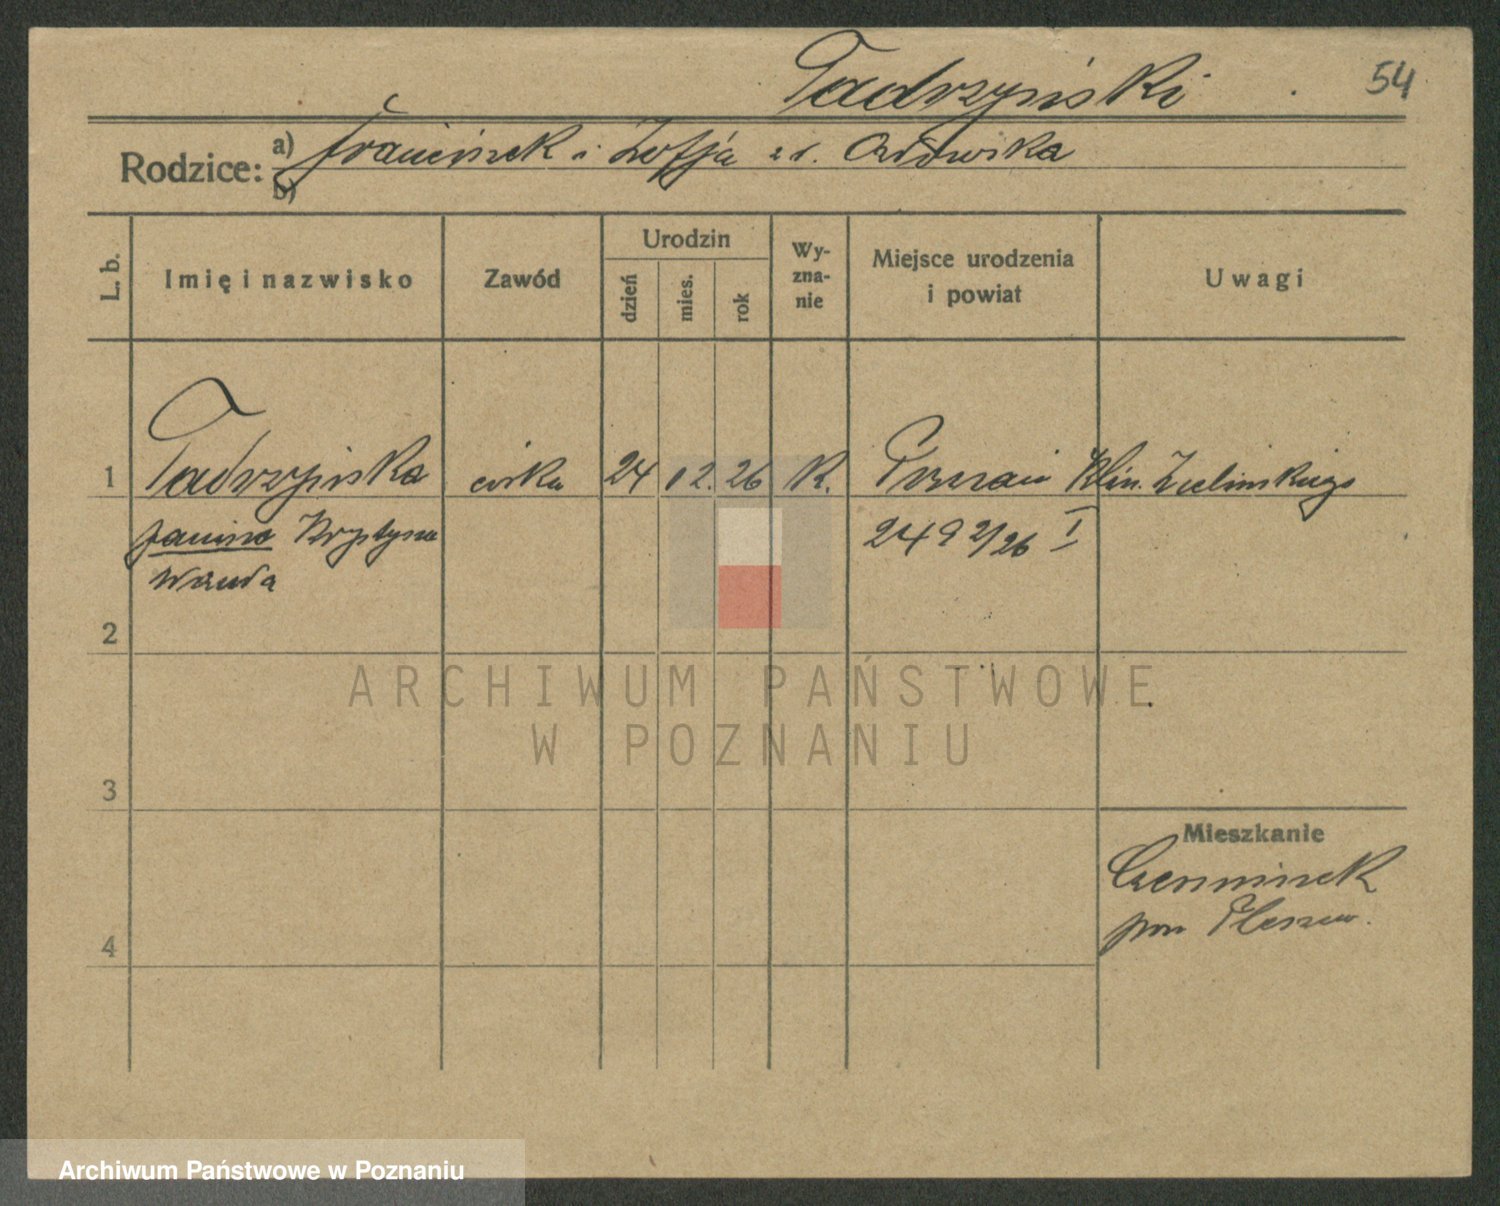 Tadrzyński
54
Rodzice: a) Franciszek i Zofja
b)
L. b.
Imię i nazwisko
Zawód
Urodzin
dzień
mies.
rok
Wy-
zna-
nie
Miejsce urodzenia
i powiat
Uwagi
1 Tadrzyńska córka 24 12. 26 K. Poznań Klin. Zielińskiego
Janina Krystyna 249 2/26 I
Wanda
2
3
4
Mieszkanie
Czerminek
pow Pleszew.
ARCHIWUM PAŃSTWOWE
W POZNANIU
Archiwum Państwowe w Poznaniu